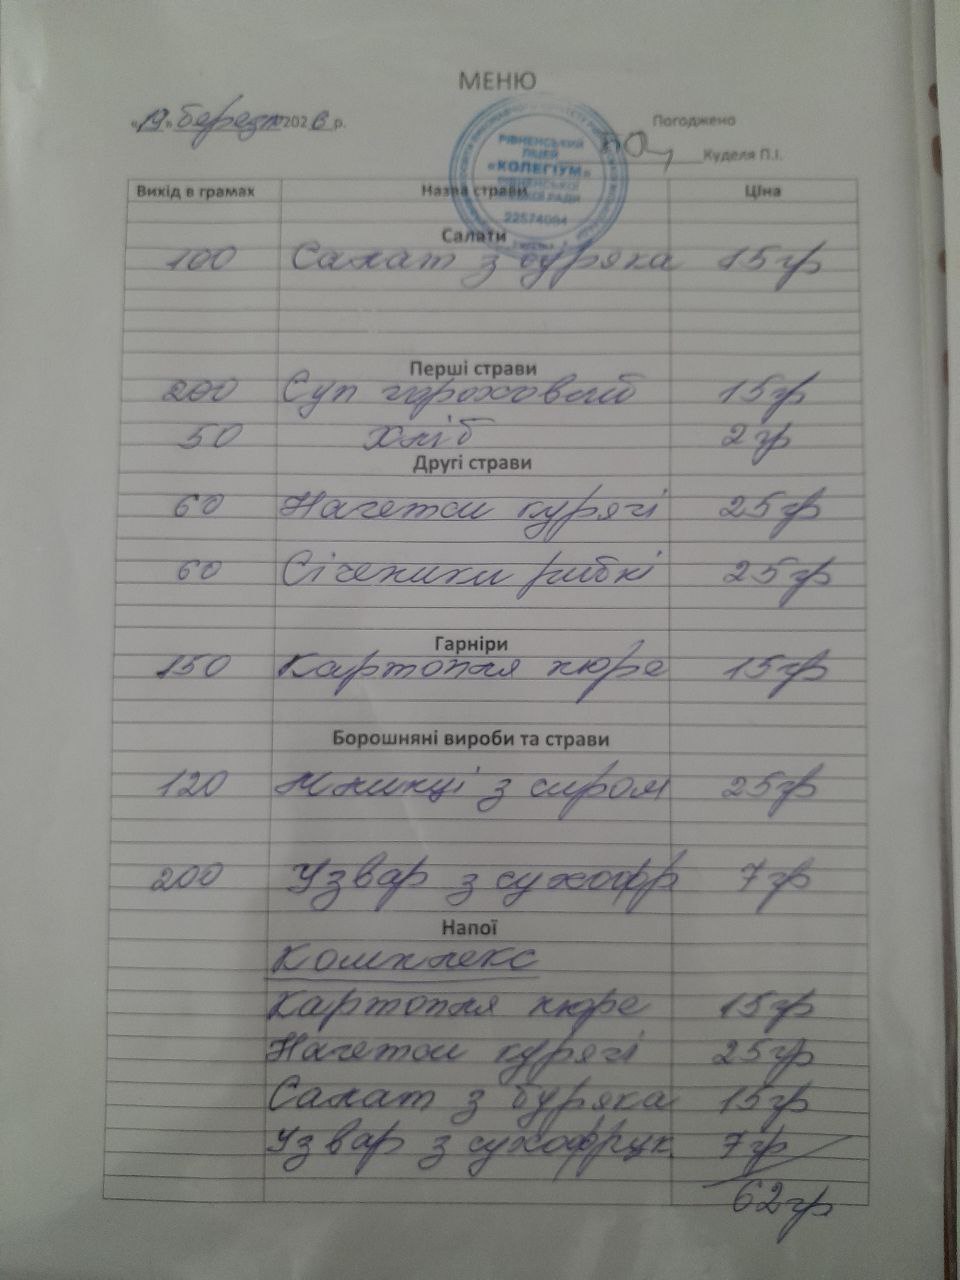 МЕНЮ
«19» березня 2026 р.
Погоджено
Куделя П.І.
РІВНЕНСЬКИЙ
ЛІЦЕЙ
«КОЛЕГІУМ»
РІВНЕНСЬКОЇ
МІСЬКОЇ РАДИ
22574004
Вихід в грамах Назва страви Ціна
Салати
100 Салат з буряка 15гр
Перші страви
200 Суп гороховий 15гр
50 Хліб 2гр
Другі страви
60 Нагетси курячі 25гр
60 Січеники рибні 25гр
Гарніри
150 Картопля пюре 15гр
Борошняні вироби та страви
120 Млинці з сиром 25гр
200 Узвар з сухофр 7гр
Напої
Комплекс
Картопля пюре 15гр
Нагетси курячі 25гр
Салат з буряка 15гр
Узвар з сухофрук 7гр
62гр